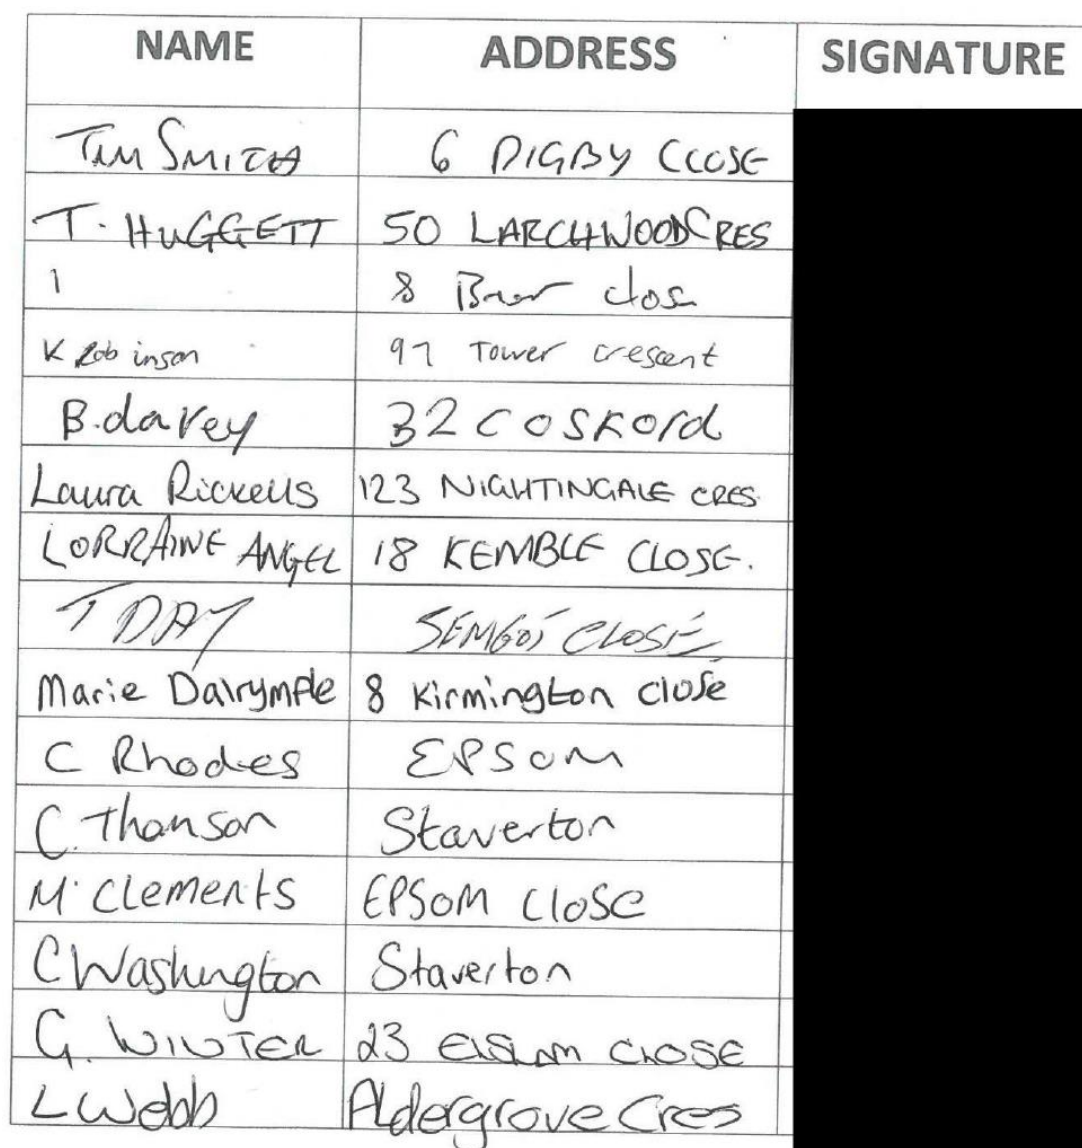 NAME ADDRESS SIGNATURE
Tim SMITH 6 DIGBY CLOSE
T. HUGGETT 50 LARCHWOOD CRES
8 close
K Robinson 97 Tower crescent
B. davey 32 COSKOrd
Laura Ricketts 123 NIGHTINGALE CRES
LORRAINE ANGEL 18 KEMBLE CLOSE.
T DAY CLOSE
Marie Dalrymple 8 Kirmington close
C Rhodes EPSOM
C. Thomson Staverton
M. Clements EPSOM CLOSE
C Washington Staverton
G. WINTER 23 CLOSE
L Webb Aldergrove Cres